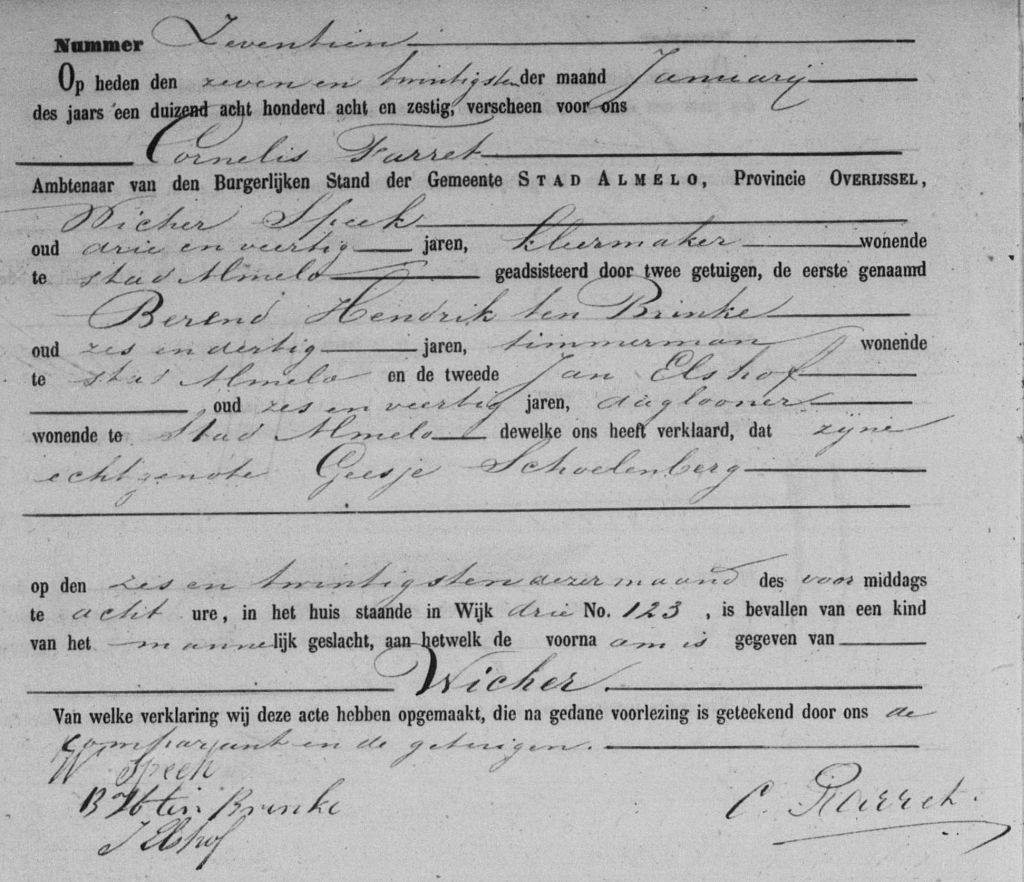 Nummer Zeventien
Op heden den zeven en twintigsten der maand Januarij
des jaars een duizend acht honderd acht en zestig, verscheen voor ons
Cornelis Farret
Ambtenaar van den Burgerlijken Stand der Gemeente STAD ALMELO, Provincie OVERIJSSEL,
Wicher Speek
oud drie en veertig jaren, kleermaker wonende
te stad Almelo geadsisteerd door twee getuigen, de eerste genaamd
Berend Hendrik ten Brinke
oud zes en dertig jaren, timmerman wonende
te stad Almelo en de tweede Jan Elshof
oud zes en veertig jaren, daglooner
wonende te Stad Almelo dewelke ons heeft verklaard, dat zijne
echtgenote Geesje Schoelenberg
op den zes en twintigsten dezer maand des voor middags
te acht ure, in het huis staande in Wijk drie No. 123, is bevallen van een kind
van het mannelijk geslacht, aan hetwelk de voornaam is gegeven van
Wicher.
Van welke verklaring wij deze acte hebben opgemaakt, die na gedane voorlezing is geteekend door ons de
comparant en de getuigen.
W Speek
B H ten Brinke
J Elshof
C. Farret.